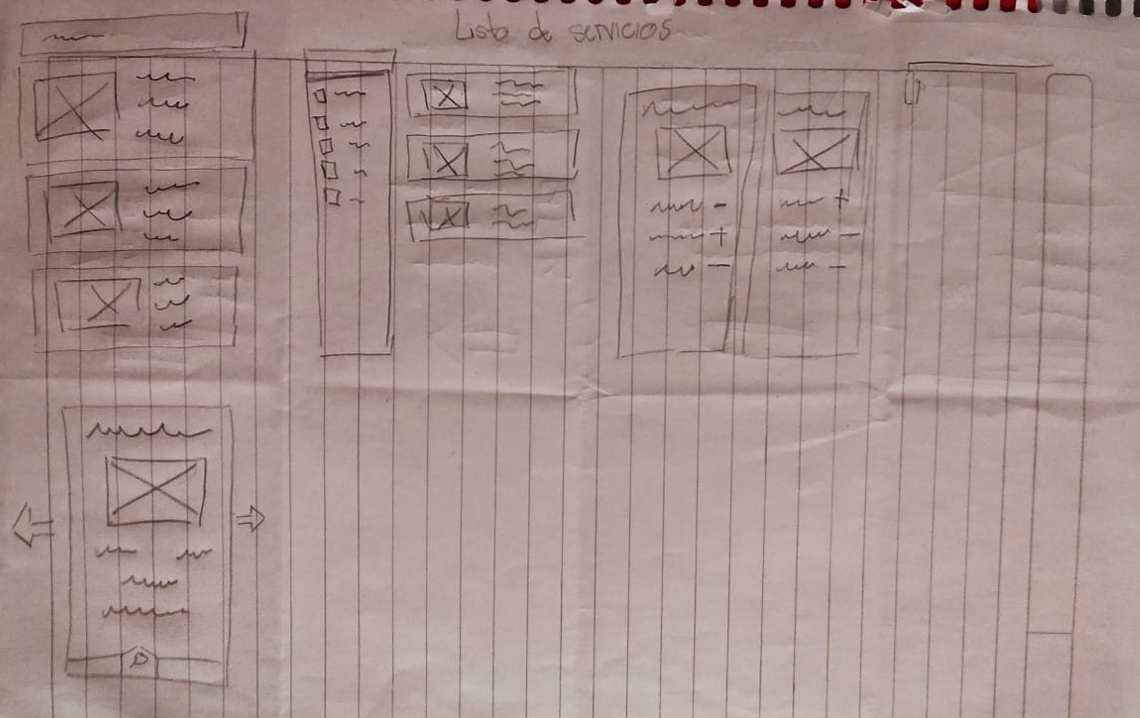 Lista de servicios